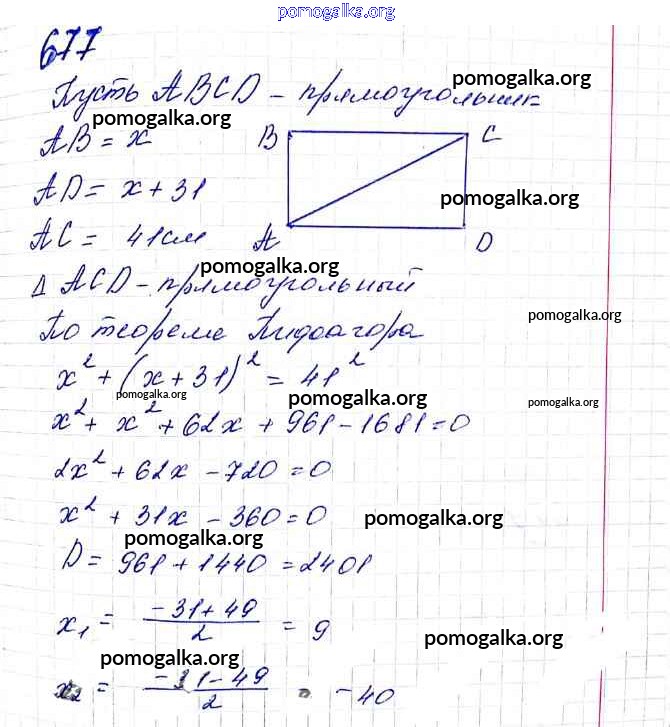 pomogalka.org
677
Пусть ABCD - прямоугольник
pomogalka.org
pomogalka.org
AB = x
B C
AD = x + 31
pomogalka.org
AC = 41см
A D
pomogalka.org
Δ ACD - прямоугольный
pomogalka.org
По теореме Пифагора
x² + (x + 31)² = 41²
pomogalka.org
pomogalka.org
pomogalka.org
x² + x² + 62x + 961 - 1681 = 0
2x² + 62x - 720 = 0
x² + 31x - 360 = 0
pomogalka.org
pomogalka.org
D = 961 + 1440 = 2401
x₁ = (-31 + 49)/2 = 9
pomogalka.org
pomogalka.org
x₂ = (-31 - 49)/2 = -40